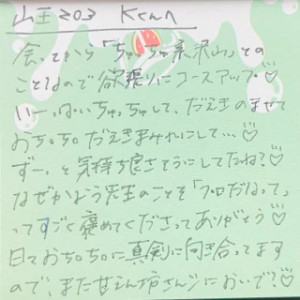 山王203 Kくんへ
会ってから「ちゅちゅ系沢山」との
ことなので欲張りにコースアップ♡
いーっぱいちゅっちゅして、だえきのませて
おちちだえきまみれにして…♡
ずーっと気持ち良さそうにしてたね?♡
なぜかよう先生のことを「プロだなって」
ってすごく褒めてくださってありがとう♡
日々おちちに真剣に向き合ってます
ので、また甘えん坊さんしにおいで?♡